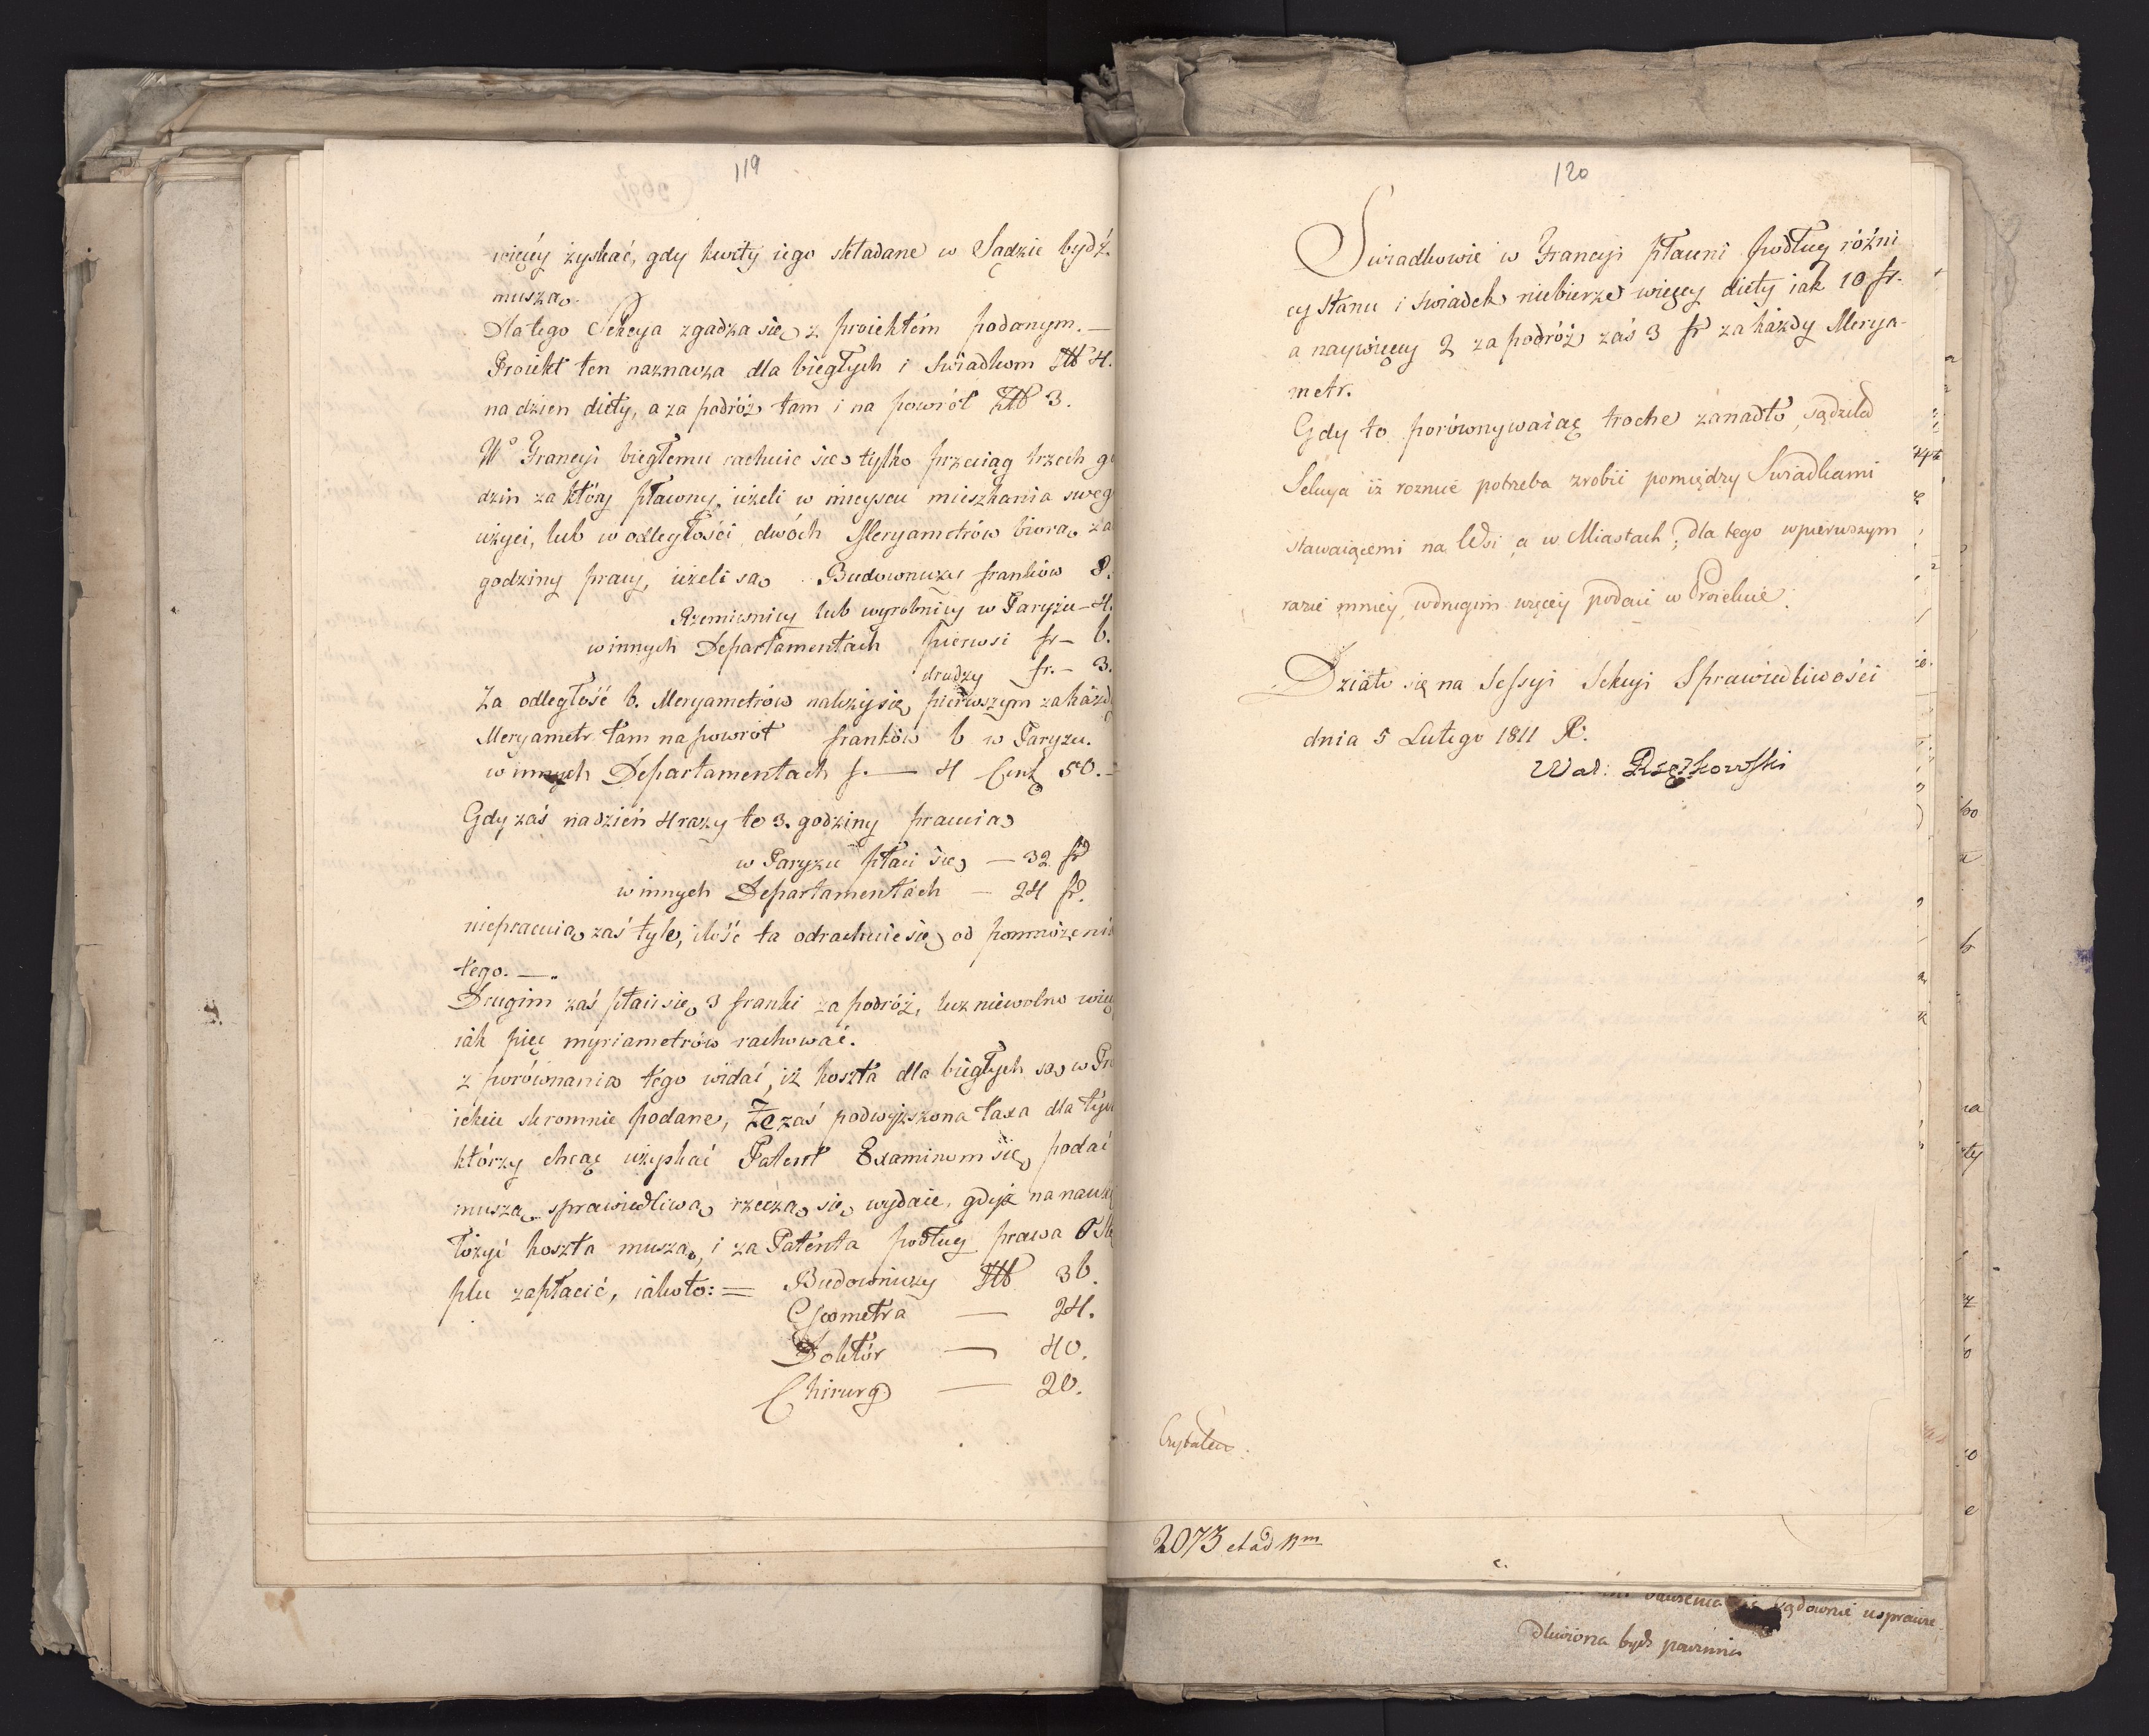 119
więcéy zyskać, gdy kwity iego składane w Sądzie bydź
muszą.
Dla tego Sekcya zgadza się z proiektém podanym. —
Proiekt ten naznacza dla biegłych i Swiadkom 4.
na dzien diety, a za podróż tam i na powrót 3.
W Francyi biegłemu rachuie się tylko przeciąg trzech go
dzin za który płatny, ieżeli w mieyscu mieszkania sweg
użyci, lub w odległości dwóch Meryametrów biorą za
godziny pracy, ieżeli są Budowniczy franków 8.
Rzemieśnicy lub wyrobnicy w Paryżu — 4.
w innych Departamentach pierwsi fr — 6.
drudzy fr. — 3.
Za odległość 6. Meryametrów należy się pierwszym za każd
Meryametr tam na powrót franków 6 w Paryzu.
w innych Departamentach f. — 4 Cent 50. —
Gdy zaś na dzień 4 razy te 3. godziny pracuią
w Paryzu płaci się — 32 fr
w innych Departamentach — 24 fr.
niepracuią zaś tyle, ilość ta odrachuie się od pomnożenia
tego. —
Drugim zaś płaci się 3 franki za podróż, lecz niewolno więc
iak pięc myriametrów rachować.
z porównania tego widać, iż koszta dla biegłych są w Pro
iekcie skromnie podane, Że zaś podwyższona taxa dla tych
którzy chcąc uzyskać Patent Examinom się podać
muszą sprawiedliwą rzeczą się wydaie, gdyż na naukę
łożyć koszta muszą, i za Patenta podług prawa o Stę
plu zapłacić, iakoto: = Budowniczy 36.
Geometra — 24.
Doktór — 40.
Chirurg — 20.
120
Swiadkowie w Francyi płatni podług różni
cy stanu i swiadek niebierze więcey diety iak 10 fr.
a naywięcey 2 za podróż zaś 3 fr za każdy Merya-
metr.
Gdy to porównywaiąc troche zanadto, sądziła
Sekcya iż roznicę potrzeba zrobić pomiędzy Swiadkami
stawaiącemi na Wsi a w Miastach; dla tego w pierwszym
razie mniéy, w drugim więcéy podaie w Proiekcie.
Działo się na Sessyi Sekcyi Sprawiedliwości
dnia 5 Lutego 1811 R.
Wal: Rzętkowski
Czytałem
2073 et ad Nm
sądownie usprawie
dliwiona bydź powinna